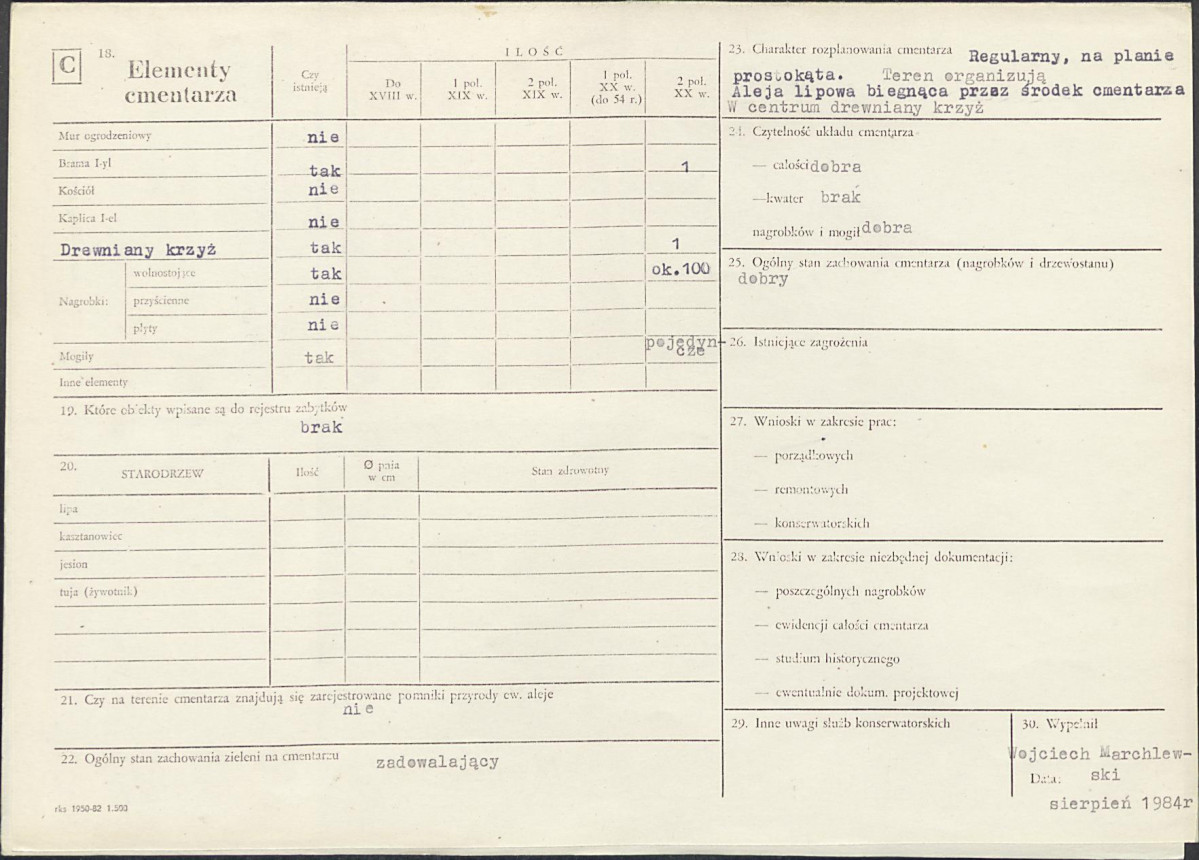 C
18.
Elementy
cmentarza
Czy
istnieją
ILOŚĆ
Do
XVIII w.
1 pol.
XIX w.
2 pol.
XIX w.
1 pol.
XX w.
(do 54 r.)
2 pol.
XX w.
Mur ogrodzeniowy nie
Brama I-yl tak 1
Kościół nie
Kaplica I-el nie
Drewniany krzyż tak 1
Nagrobki:
wolnostojące tak ok.100
przyścienne nie
płyty nie
Mogiły tak pojedyn-
cze
Inne elementy
19. Które obiekty wpisane są do rejestru zabytków
brak
20. STARODRZEW
Ilość
Ø pnia
w cm
Stan zdrowotny
lipa
kasztanowiec
jesion
tuja (żywotnik)
21. Czy na terenie cmentarza znajdują się zarejestrowane pomniki przyrody ew. aleje
nie
22. Ogólny stan zachowania zieleni na cmentarzu zadowalający
rks 1950-82 1.500
23. Charakter rozplanowania cmentarza Regularny, na planie
prostokąta. Teren organizują
Aleja lipowa biegnąca przez środek cmentarza
W centrum drewniany krzyż
24. Czytelność układu cmentarza
— całości dobra
— kwater brak
nagrobków i mogił dobra
25. Ogólny stan zachowania cmentarza (nagrobków i drzewostanu)
dobry
26. Istniejące zagrożenia
27. Wnioski w zakresie prac:
— porządkowych
— remontowych
— konserwatorskich
28. Wnioski w zakresie niezbędnej dokumentacji:
— poszczególnych nagrobków
— ewidencji całości cmentarza
— studium historycznego
— ewentualnie dokum. projektowej
29. Inne uwagi służb konserwatorskich
30. Wypełnił
Wojciech Marchlew-
Data: ski
sierpień 1984r